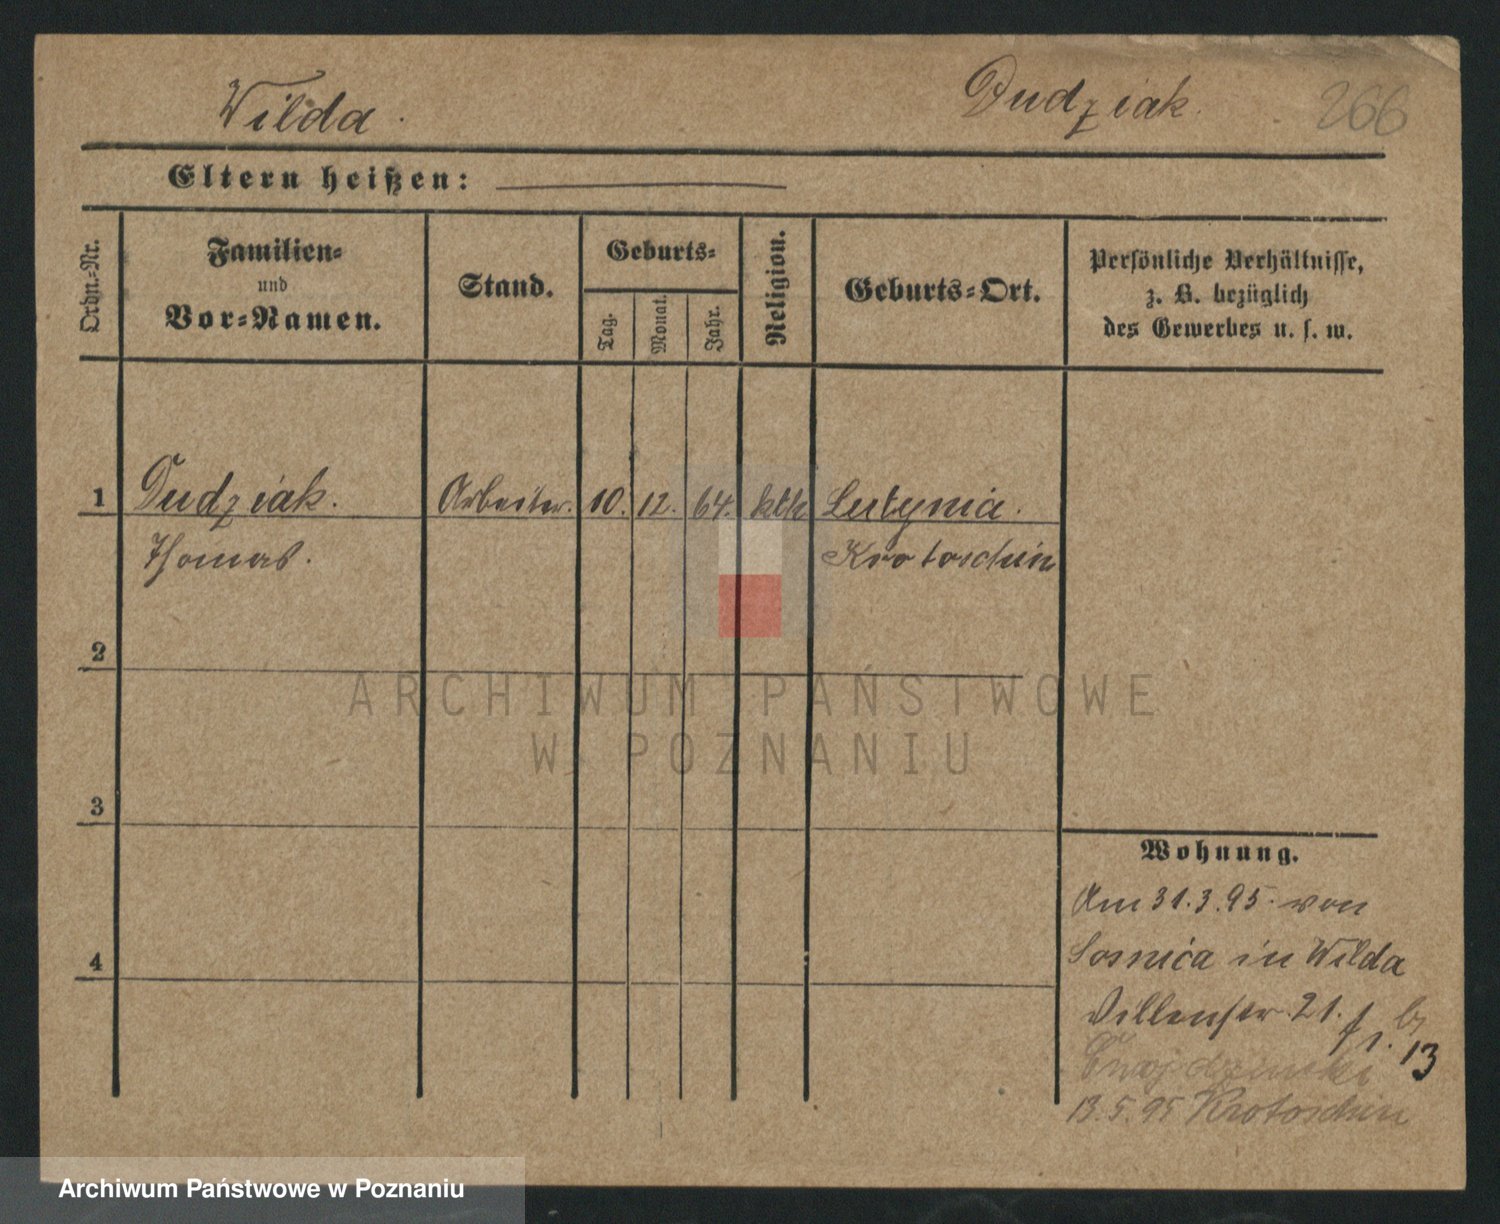 Wilda.
Dudziak.
266
Eltern heißen:
Ordn.-Nr.
Familien-
und
Vor-Namen.
Stand.
Geburts-
Tag.
Monat.
Jahr.
Religion.
Geburts-Ort.
Persönliche Verhältnisse,
z. B. bezüglich
des Gewerbes u. s. w.
1
Dudziak.
Arbeiter.
10.
12.
64.
kth
Lutynia.
Thomas.
Krotoschin
2
3
4
Wohnung.
Am 31.3.95. von
Sosnica in Wilda
Villenstr. 21.
13
13.5.95 Krotoschin
ARCHIWUM PAŃSTWOWE
W POZNANIU
Archiwum Państwowe w Poznaniu